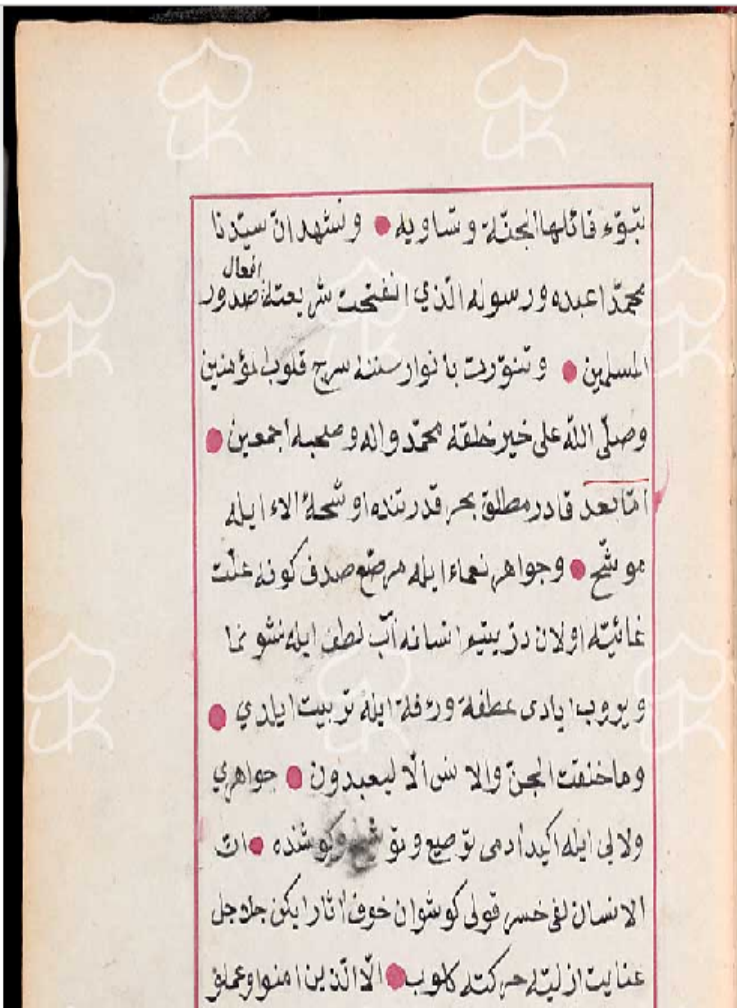 تبوّء قائلها الجنّة وتساويه ● ونشهد انّ سيّدنا
افعال
محمّدا عبده ورسوله الّذي انفتحت شريعته صدور
المسلمين ● وتنوّرت بانوار سننه سرج قلوب المؤمنين
وصلّى اللّه على خير خلقه محمّد واله وصحبه اجمعين ●
امّا بعد قادر مطلق بحر قدرتنده اوشحهٔ الاء ايله
موشّح ● وجواهر نعماء ايله مرصّع صدف كونه علّت
غائيّه اولان درّ يتيم انسانه آب لطف ايله نشو نما
ويروب ايادى عطفة ورءفة ايله تربيت ايلدي ●
وما خلقت الجنّ والانس الّا ليعبدون ● جواهري
ولالى ايله اكيد ادمى توصيع وكوشنده ● انّ
الانسان لفى خسر قولى كوشوان خوف اثار ايكن
عنايت ازليّه حركته كلوب ● الّا الّذين امنوا وعملو